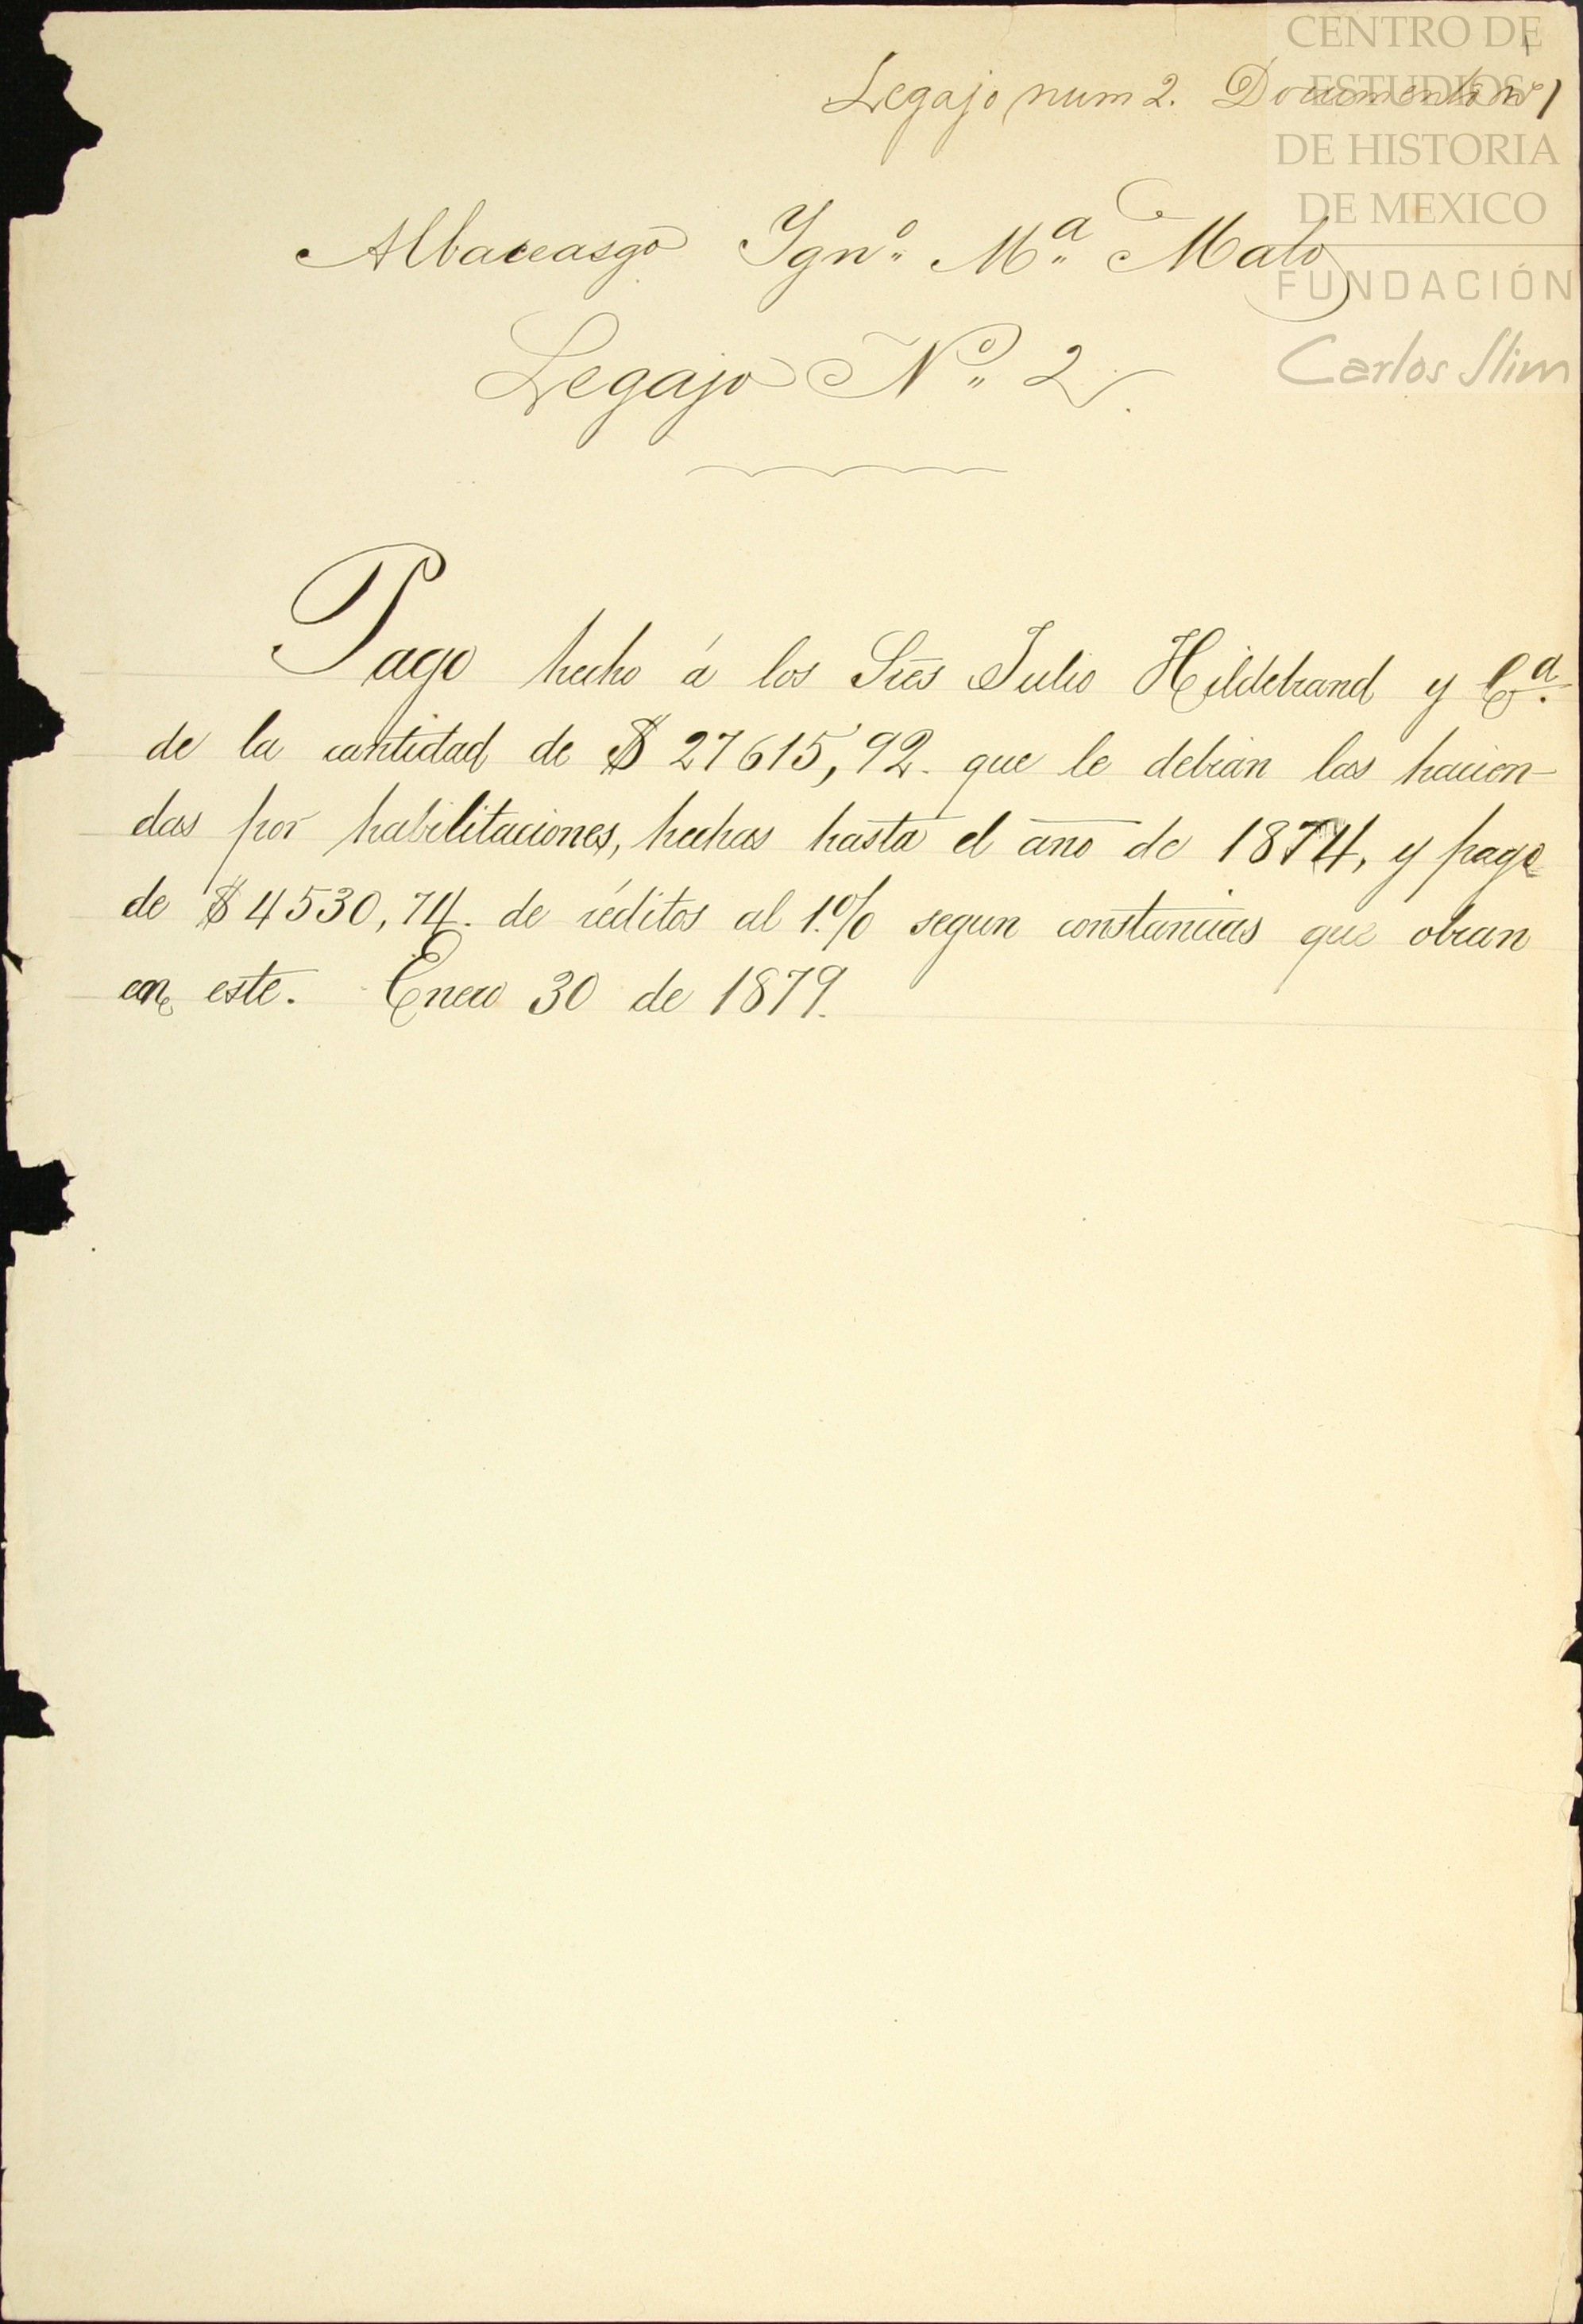 CENTRO DE
ESTUDIOS
DE HISTORIA
DE MEXICO
FUNDACIÓN
Carlos Slim
Legajo num 2. Documento nº 1
Albaceasgo Ygnº Mª Malo
Legajo Nº 2.
Pago hecho á los Sres Julio Hildebrand y Cª.
de la cantidad de $ 27615,92. que le debian las hacien-
das por habilitaciones, hechas hasta el año de 1874, y pago
de $ 4530,74. de réditos al 1.% segun constancias que obran
en este. Enero 30 de 1879.